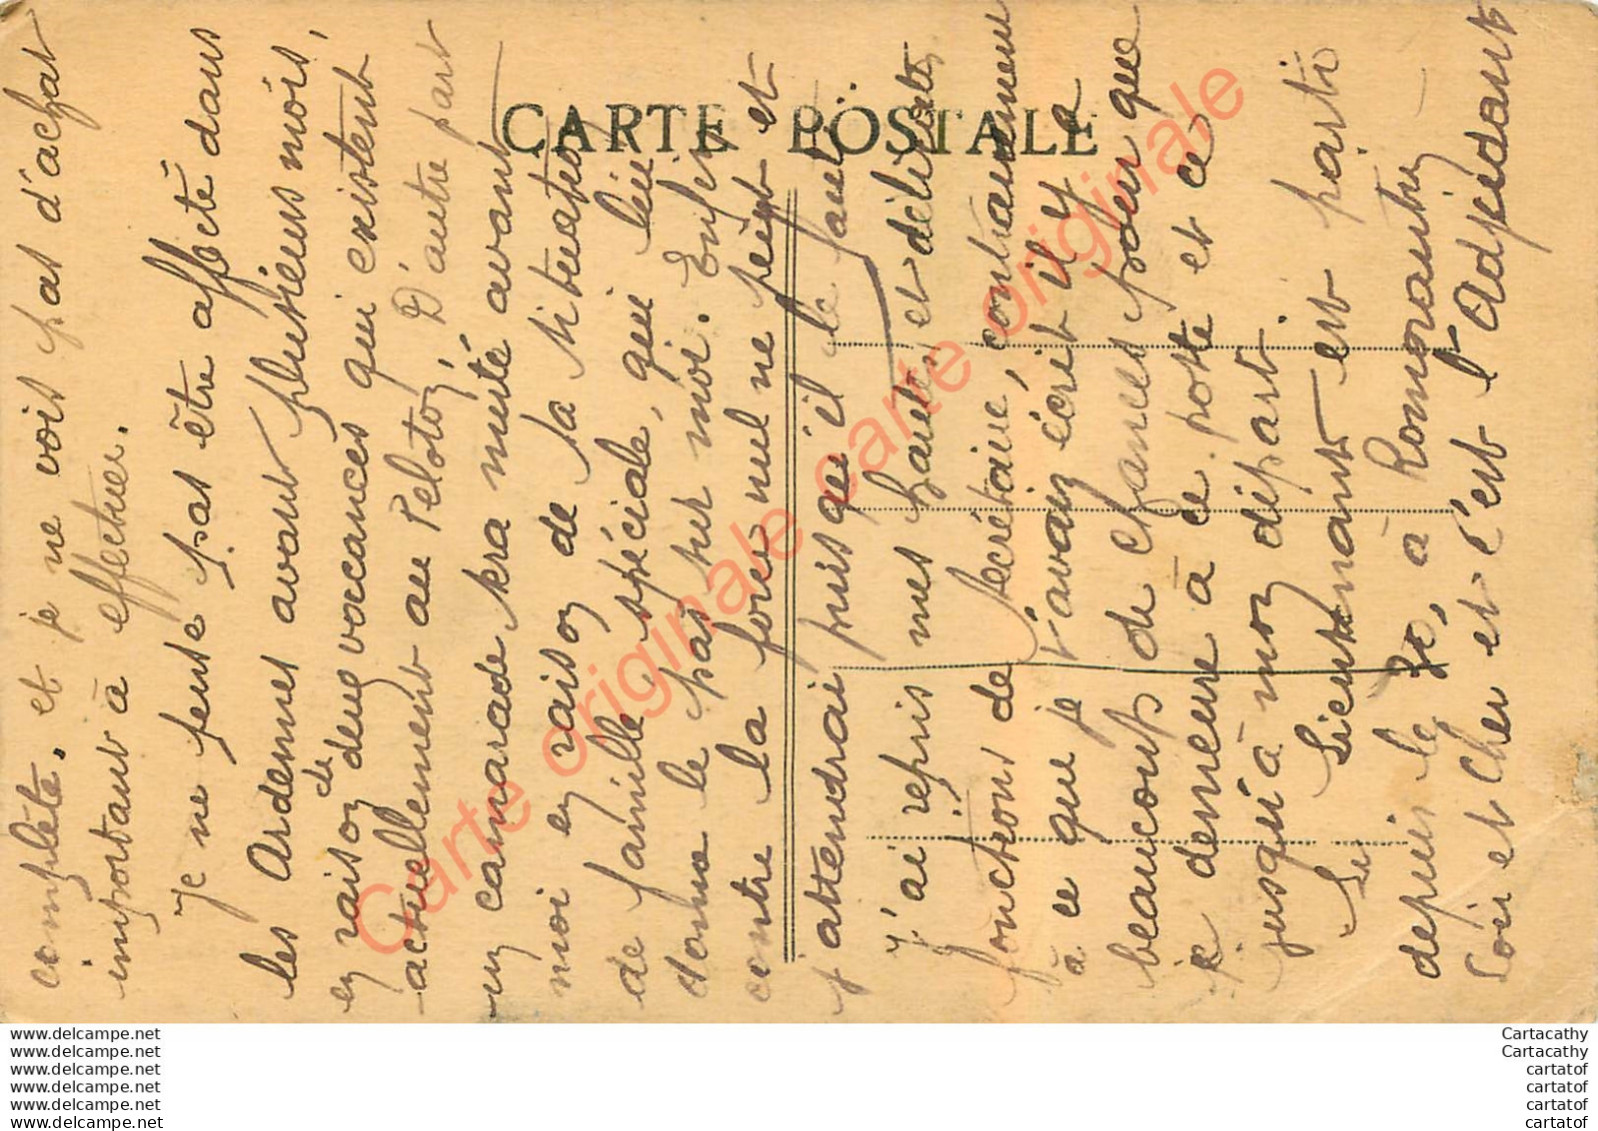 complète, et je ne vois pas d'achat
important à effectuer.
Je ne pense pas être affecté dans
les Ardennes avant plusieurs mois,
en raison de deux vacances qui existent
actuellement au Peloton, D'autre part
un camarade sera muté avant
moi en raison de sa situation
de famille spéciale, qui lui
donne le pas sur moi. Enfin
contre la force nul ne peut et
j'attendrai puisqu'il le faut
j'ai repris mes hautes et délicates
fonctions de secrétaire, contrairement
à ce que je t'avais écrit il y a
beaucoup de chances pour que
je demeure à ce poste et ce
jusqu'à mon départ.
Le Lieutenant est parti
depuis le 30, à Romorantin
Loir et Cher et c'est l'Adjudant
CARTE POSTALE
Carte originale carte originale
www.delcampe.net
www.delcampe.net
www.delcampe.net
www.delcampe.net
www.delcampe.net
www.delcampe.net
Cartacathy
Cartacathy
cartatof
cartatof
cartatof
cartatof